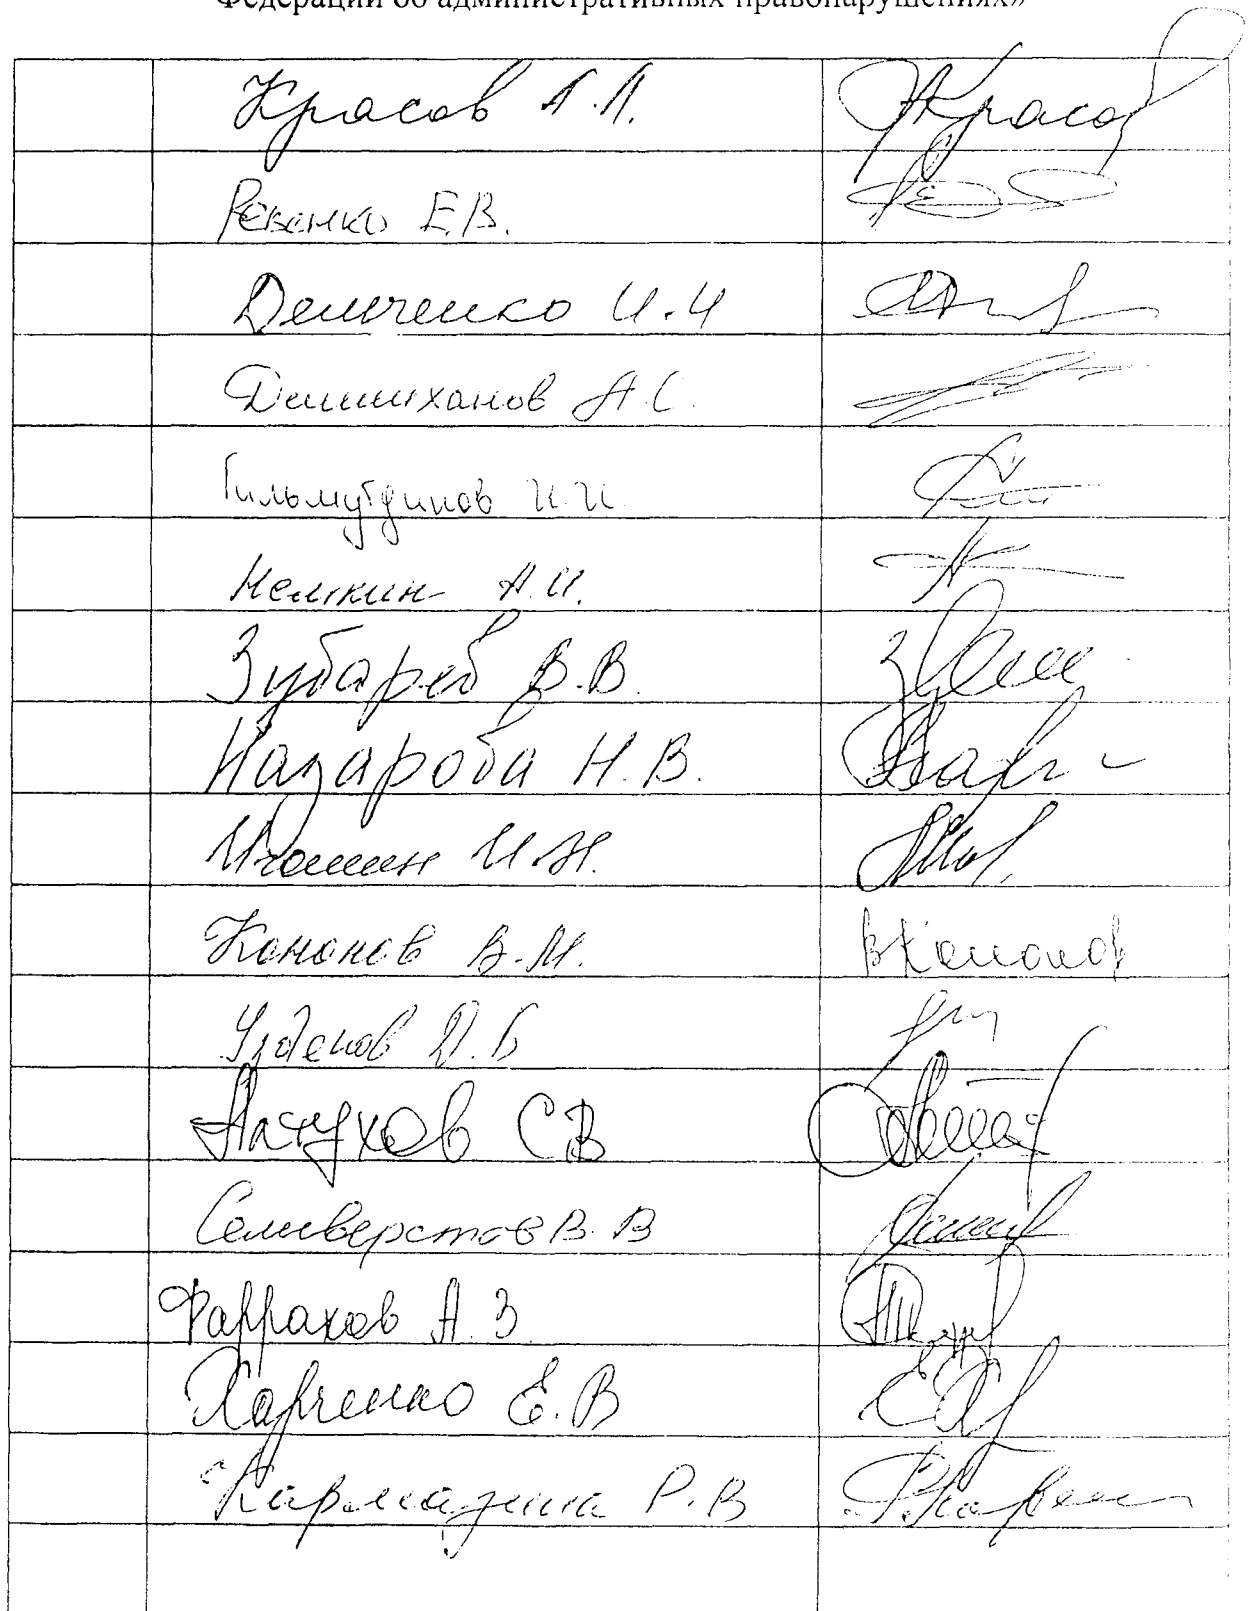 Федерации об административных правонарушениях»
Красов А.Л. Красов
Ревенко Е.В.
Демченко И.И
Делимханов А.С.
Гильмутдинов И.И
Немкин А.И.
Зубарев В.В.
Назарова Н.В.
Игошин И.Н.
Кононов В.М. ВКононов
Узденов Д.Б
Натухов СВ
Селиверстов В.В
Фаррахов А.З
Харченко Е.В
Кармазина Р.В